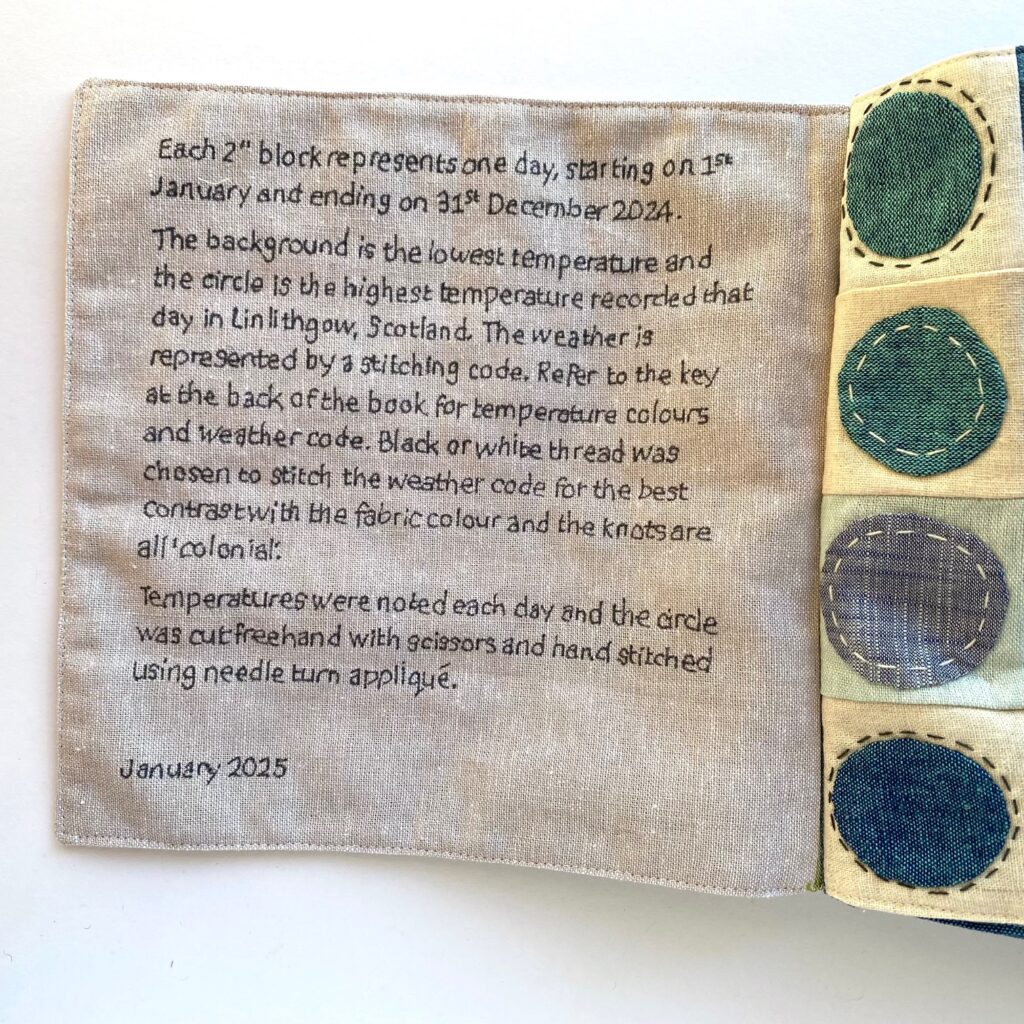 Each 2" block represents one day, starting on 1st
January and ending on 31st December 2024.
The background is the lowest temperature and
the circle is the highest temperature recorded that
day in Linlithgow, Scotland. The weather is
represented by a stitching code. Refer to the key
at the back of the book for temperature colours
and weather code. Black or white thread was
chosen to stitch the weather code for the best
contrast with the fabric colour and the knots are
all 'colonial'.
Temperatures were noted each day and the circle
was cut freehand with scissors and hand stitched
using needle turn appliqué.
January 2025